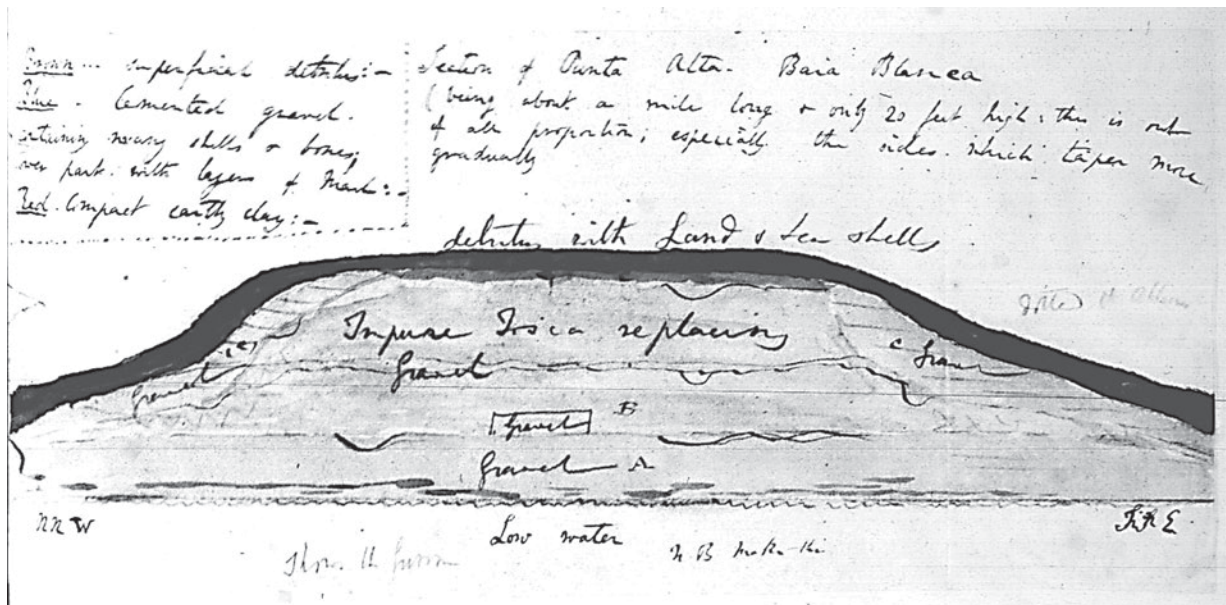 Brown -- superficial detritus :-
Blue - Cemented gravel.
containing many shells & bones;
over part. with layers of Marl :-
Red. Compact earthy clay :-
Section of Punta Alta. Baia Blanca
(being about a mile long & only 20 feet high: this is out
of all proportion; especially the sides which taper more
gradually
detritus with Land & Sea shells
Impure Tosca replacing
Gravel
Gravel
C Gravel
Gravel B
Gravel A
NNW
Low water
N B